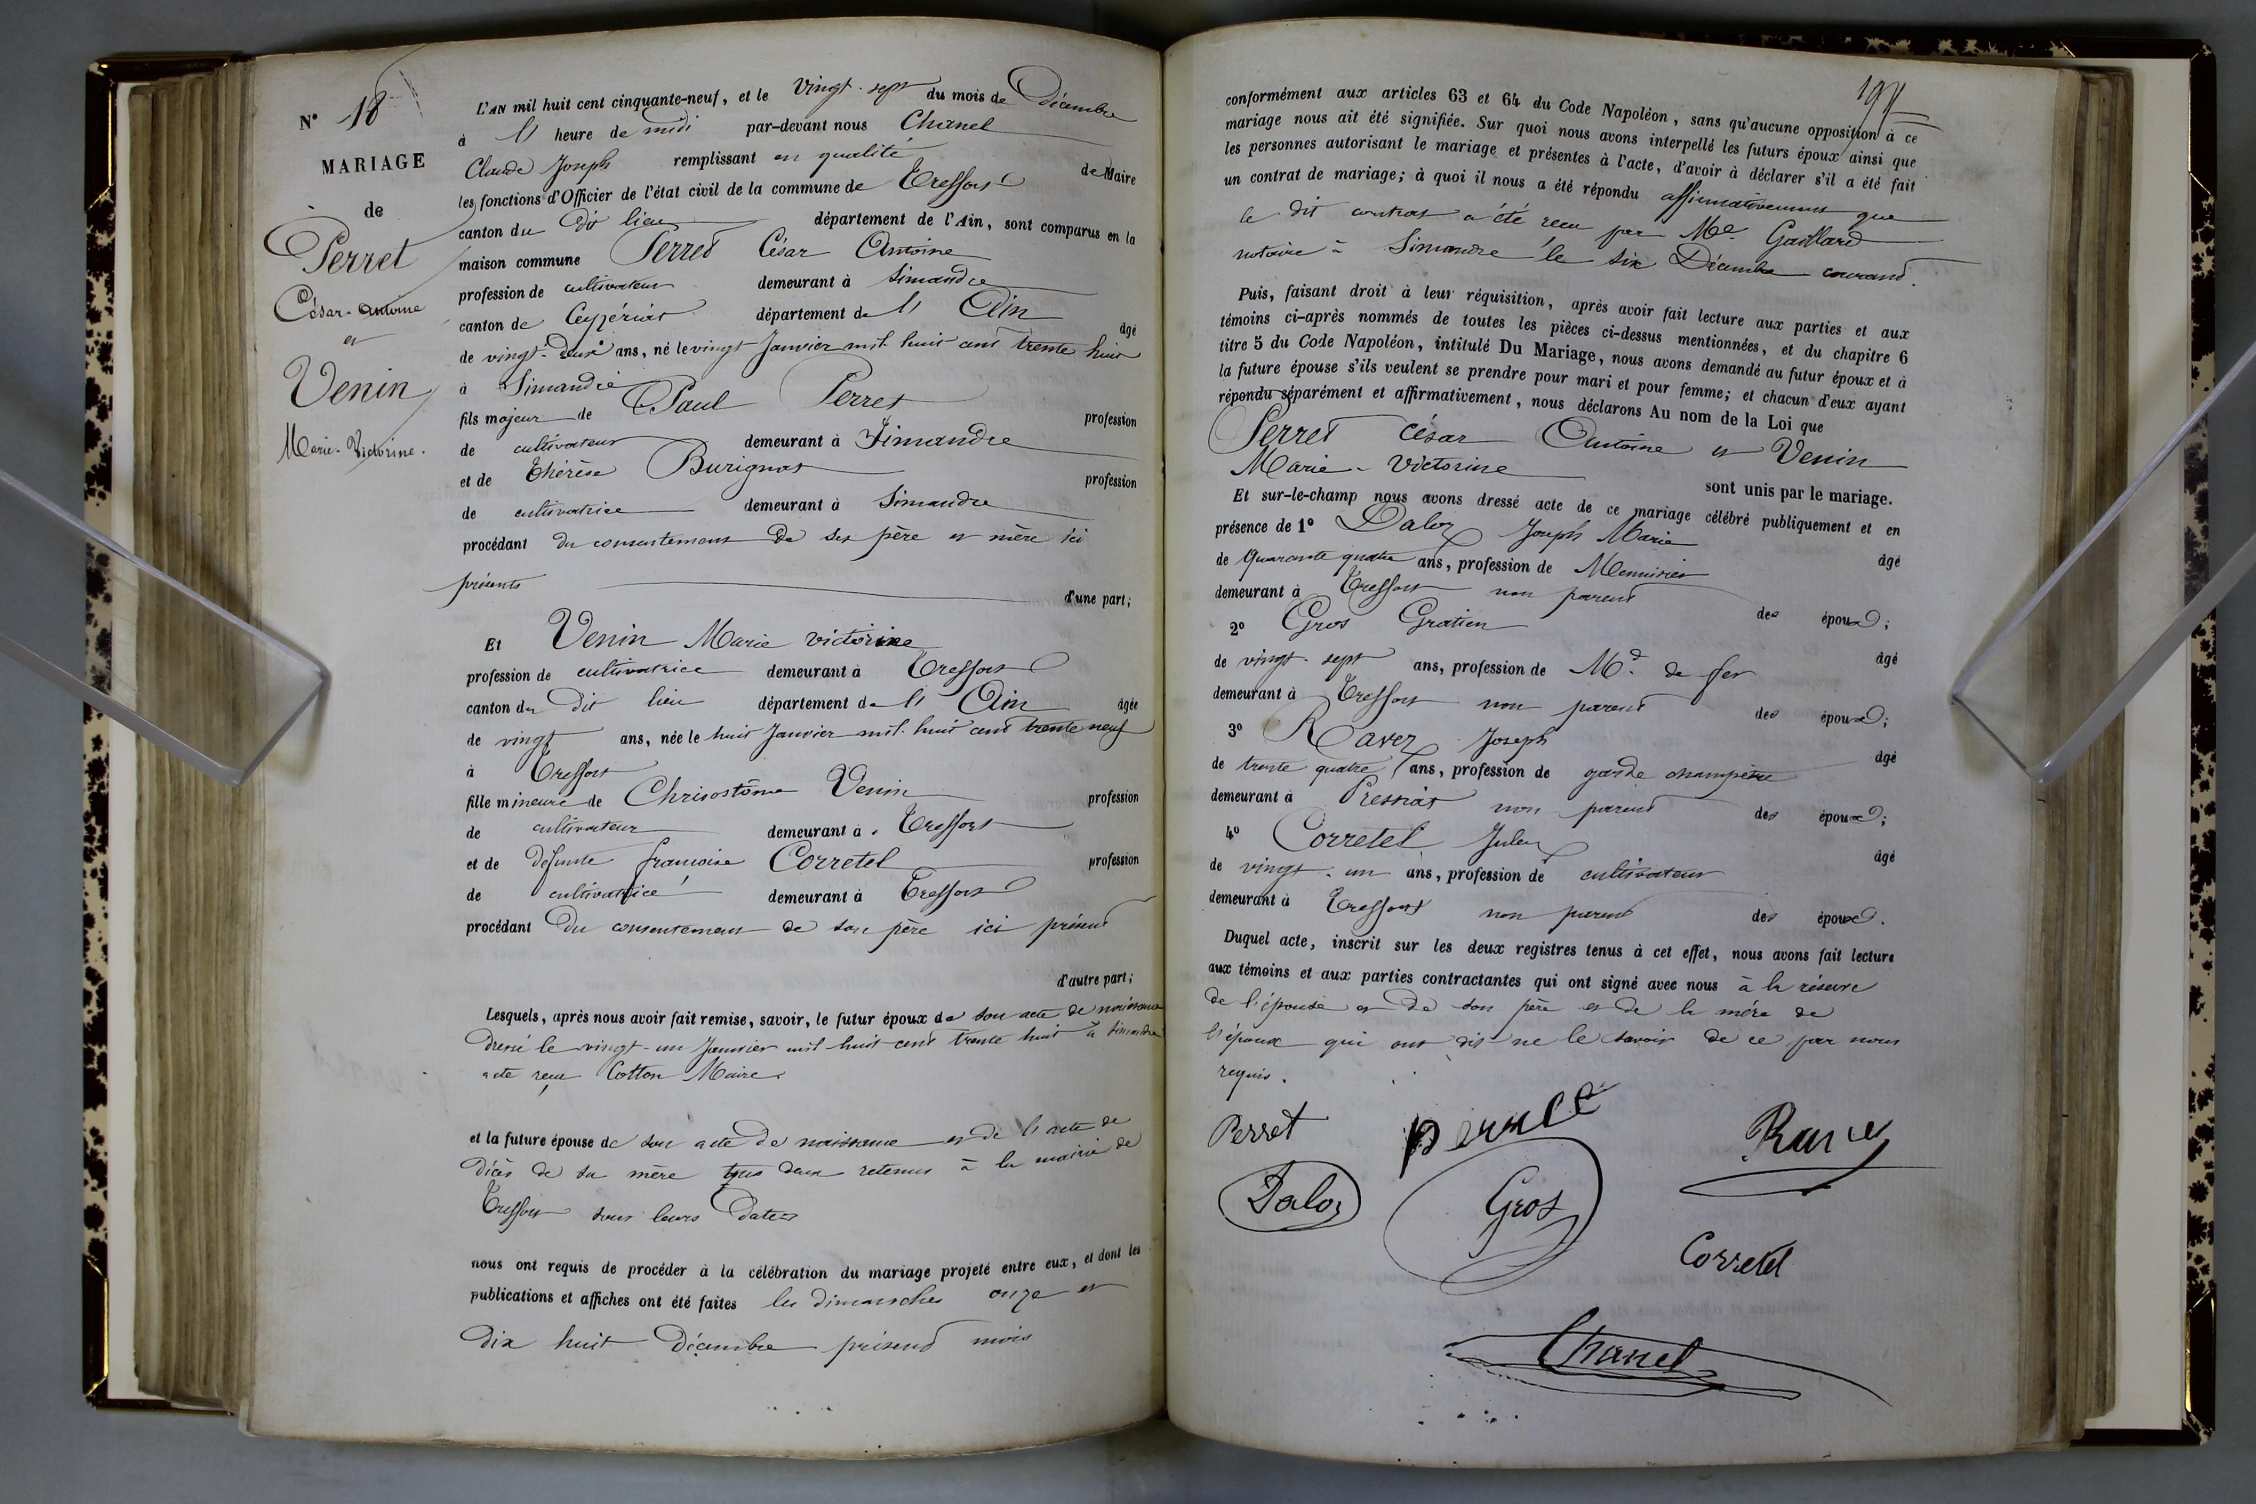 N° 18
MARIAGE
de
Perret
César-Antoine
et
Venin
Marie-Victorine.
L'AN mil huit cent cinquante-neuf, et le vingt-sept du mois de décembre
à l' heure de midi par-devant nous Chanel
Claude Joseph remplissant en qualité de Maire
les fonctions d'Officier de l'état civil de la commune de Treffort
canton du dit lieu département de l'Ain, sont comparus en la
maison commune Perret César Antoine
profession de cultivateur demeurant à Simandre
canton de Ceyzériat département de l' Ain âgé
de vingt-deux ans, né le vingt Janvier mil huit cent trente huit
à Simandre
fils majeur de Paul Perret profession
de cultivateur demeurant à Simandre
et de Thérèse Burignat profession
de cultivatrice demeurant à Simandre
procédant du consentement de ses père et mère ici
présents d'une part;
Et Venin Marie victorine
profession de cultivatrice demeurant à Treffort
canton du dit lieu département de l' Ain âgée
de vingt ans, née le huit Janvier mil huit cent trente neuf
à Treffort
fille mineure de Chrisostôme Venin profession
de cultivateur demeurant à Treffort
et de défunte françoise Corretel profession
de cultivatrice demeurant à Treffort
procédant du consentement de son père ici présent
d'autre part;
Lesquels, après nous avoir fait remise, savoir, le futur époux de son acte de naissance
dressé le vingt-un Janvier mil huit cent trente huit à Simandre
acte reçu Cotton Maire.
et la future épouse de son acte de naissance et de l'acte de
décès de sa mère tous deux retenus à la mairie de
Treffort sous leurs dates
nous ont requis de procéder à la célébration du mariage projeté entre eux, et dont les
publications et affiches ont été faites les dimanches onze et
dix huit décembre présent mois
conformément aux articles 63 et 64 du Code Napoléon, sans qu'aucune opposition à ce
mariage nous ait été signifiée. Sur quoi nous avons interpellé les futurs époux ainsi que
les personnes autorisant le mariage et présentes à l'acte, d'avoir à déclarer s'il a été fait
un contrat de mariage; à quoi il nous a été répondu affirmativement que
le dit contrat a été reçu par Me Gaillard
notaire à Simandre le six Décembre courant.
Puis, faisant droit à leur réquisition, après avoir fait lecture aux parties et aux
témoins ci-après nommés de toutes les pièces ci-dessus mentionnées, et du chapitre 6
titre 5 du Code Napoléon, intitulé Du Mariage, nous avons demandé au futur époux et à
la future épouse s'ils veulent se prendre pour mari et pour femme; et chacun d'eux ayant
répondu séparément et affirmativement, nous déclarons Au nom de la Loi que
Perret César Antoine et Venin
Marie-Victorine sont unis par le mariage.
Et sur-le-champ nous avons dressé acte de ce mariage célébré publiquement et en
présence de 1° Daloz Joseph Marie âgé
de quarante quatre ans, profession de Menuisier
demeurant à Treffort non parent des époux;
2° Gros Gratien âgé
de vingt-sept ans, profession de Md de fer
demeurant à Treffort non parent des époux;
3° Ravez Joseph âgé
de trente quatre ans, profession de garde champêtre
demeurant à Pressiat non parent des époux;
4° Corretel Jules âgé
de vingt-un ans, profession de cultivateur
demeurant à Treffort non parent des époux.
Duquel acte, inscrit sur les deux registres tenus à cet effet, nous avons fait lecture
aux témoins et aux parties contractantes qui ont signé avec nous à la réserve
de l'épouse et de son père et de la mère de
l'époux qui ont dit ne le savoir de ce par nous
requis.
Perret
Daloz Gros
Corretel
Chanel